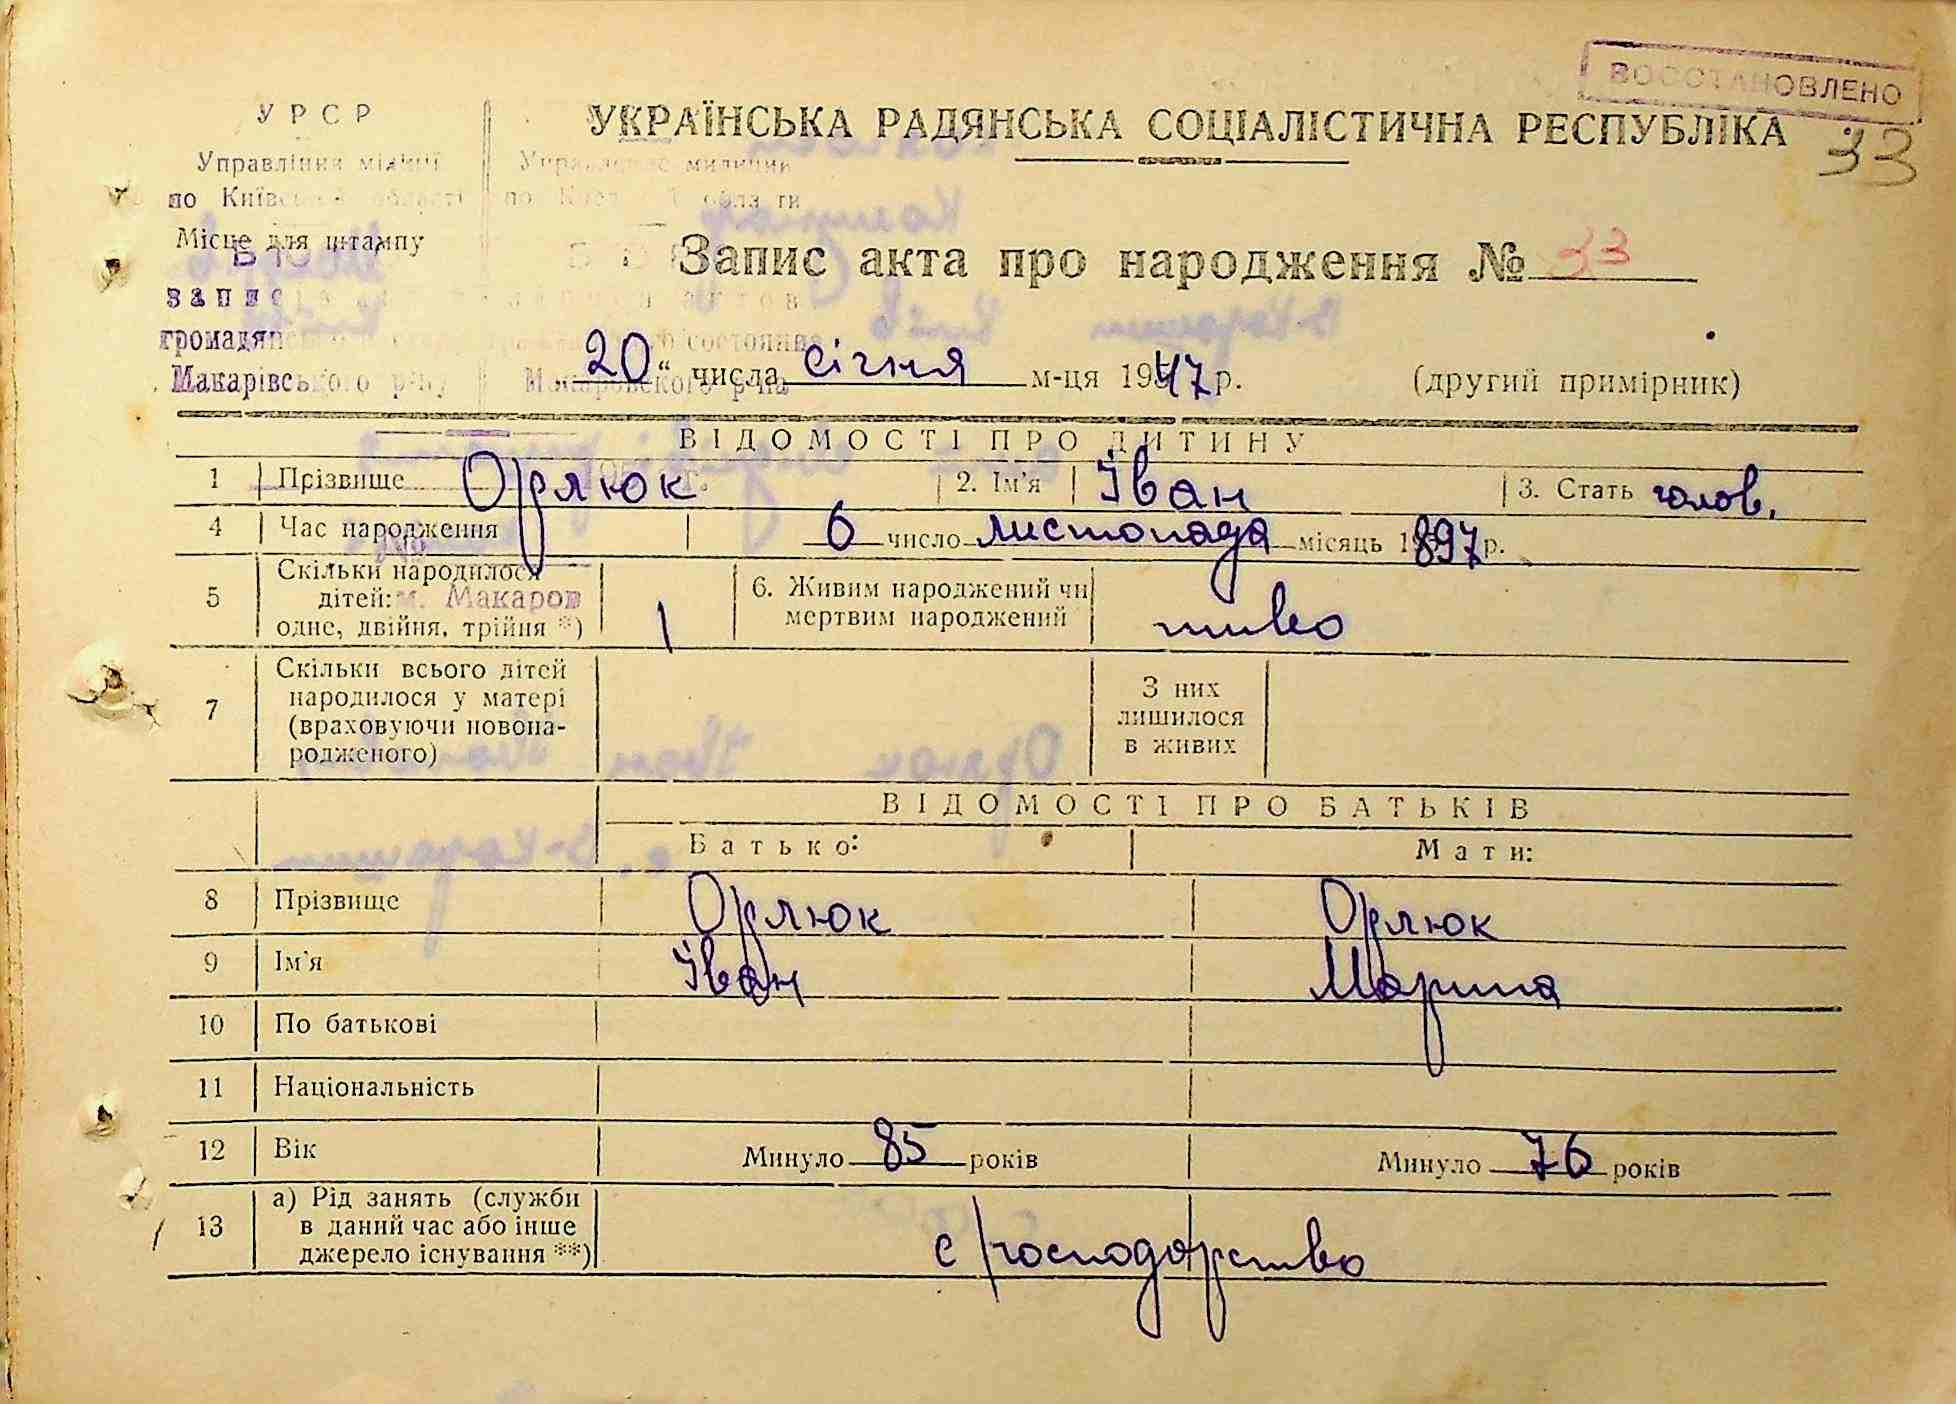 ВОССТАНОВЛЕНО
33
УРСР
УКРАЇНСЬКА РАДЯНСЬКА СОЦІАЛІСТИЧНА РЕСПУБЛІКА
Управління міліції
по Київській області
Місце для штампу
Запис акта про народження № 33
громадян
Макарівського р-ну Макаровского р-на
20 “ числа січня м-ця 1947 р. (другий примірник)
ВІДОМОСТІ ПРО ДИТИНУ
1 Прізвище Орлюк 2. Ім'я Іван 3. Стать чолов.
4 Час народження 6 число листопада місяць 1897 р.
5 Скільки народилося дітей: одне, двійня, трійня *) 1 6. Живим народжений чи мертвим народжений живо
м. Макаров
7 Скільки всього дітей народилося у матері (враховуючи новона-родженого) З них лишилося в живих
ВІДОМОСТІ ПРО БАТЬКІВ
Батько: Мати:
8 Прізвище Орлюк Орлюк
9 Ім'я Іван Марина
10 По батькові
11 Національність
12 Вік Минуло 85 років Минуло 76 років
13 а) Рід занять (служби в даний час або інше джерело існування **) с/господарство